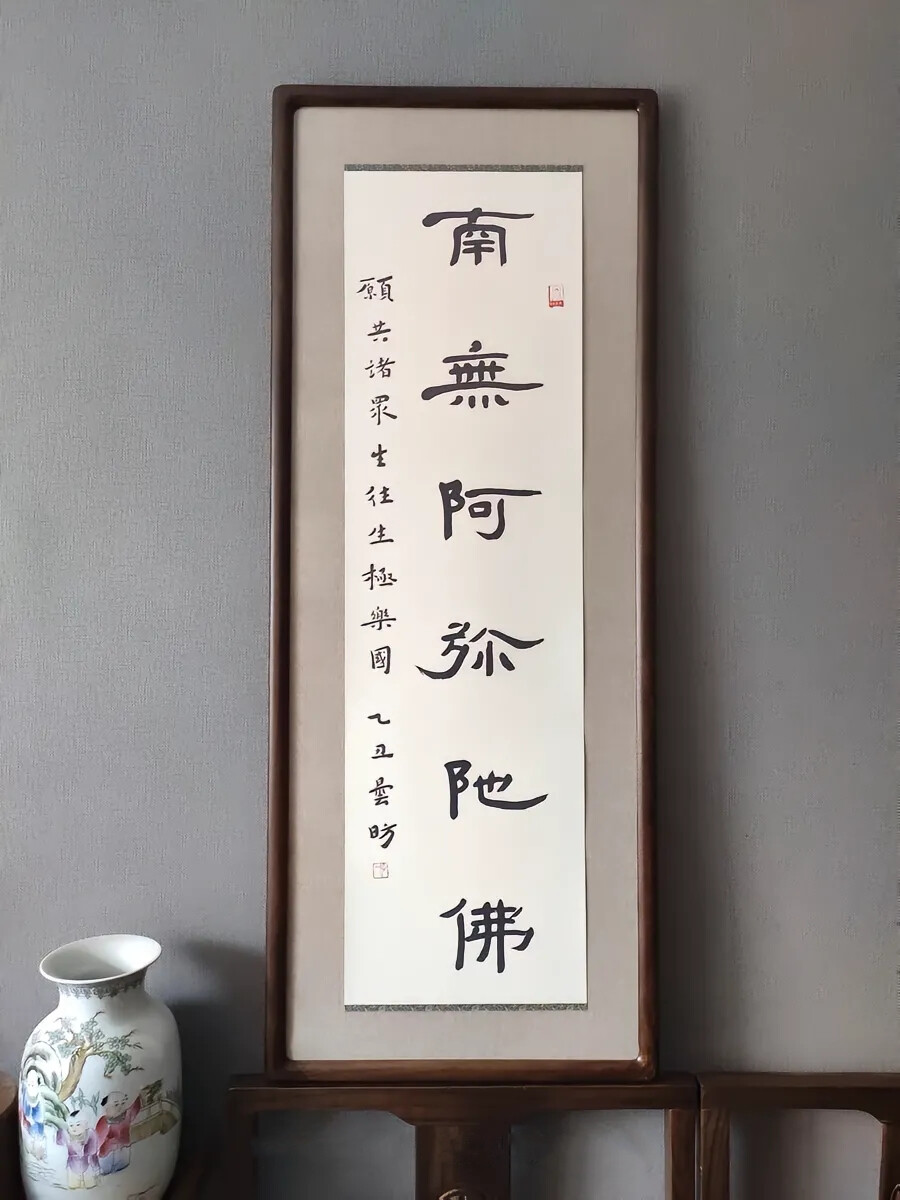 南無阿弥陀佛
願共諸眾生往生極樂國 乙丑曇昉